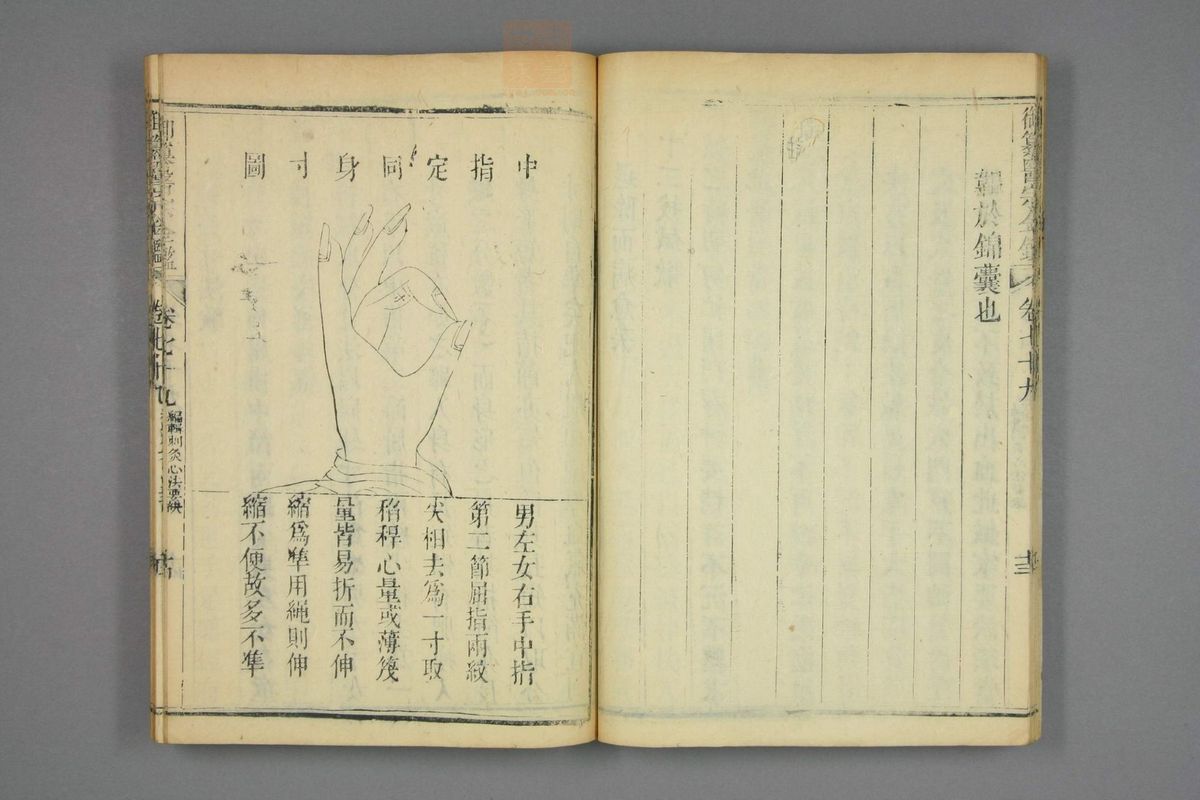 御纂醫宗金鑑
卷七十九
韜於錦囊也
中指定同身寸圖
男左女右手中指
第二節屈指兩紋
尖相去爲一寸取
稻稈心量或薄篾
量皆易折而不伸
縮爲準用繩則伸
縮不便故多不準
御纂醫宗金鑑
卷七十九
編輯刺灸心法要訣